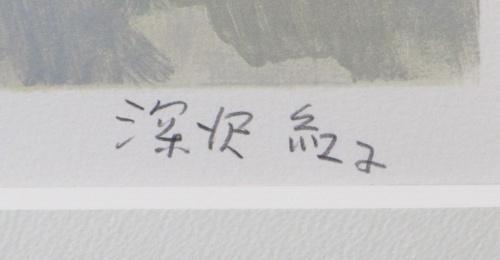 深沢 紅子